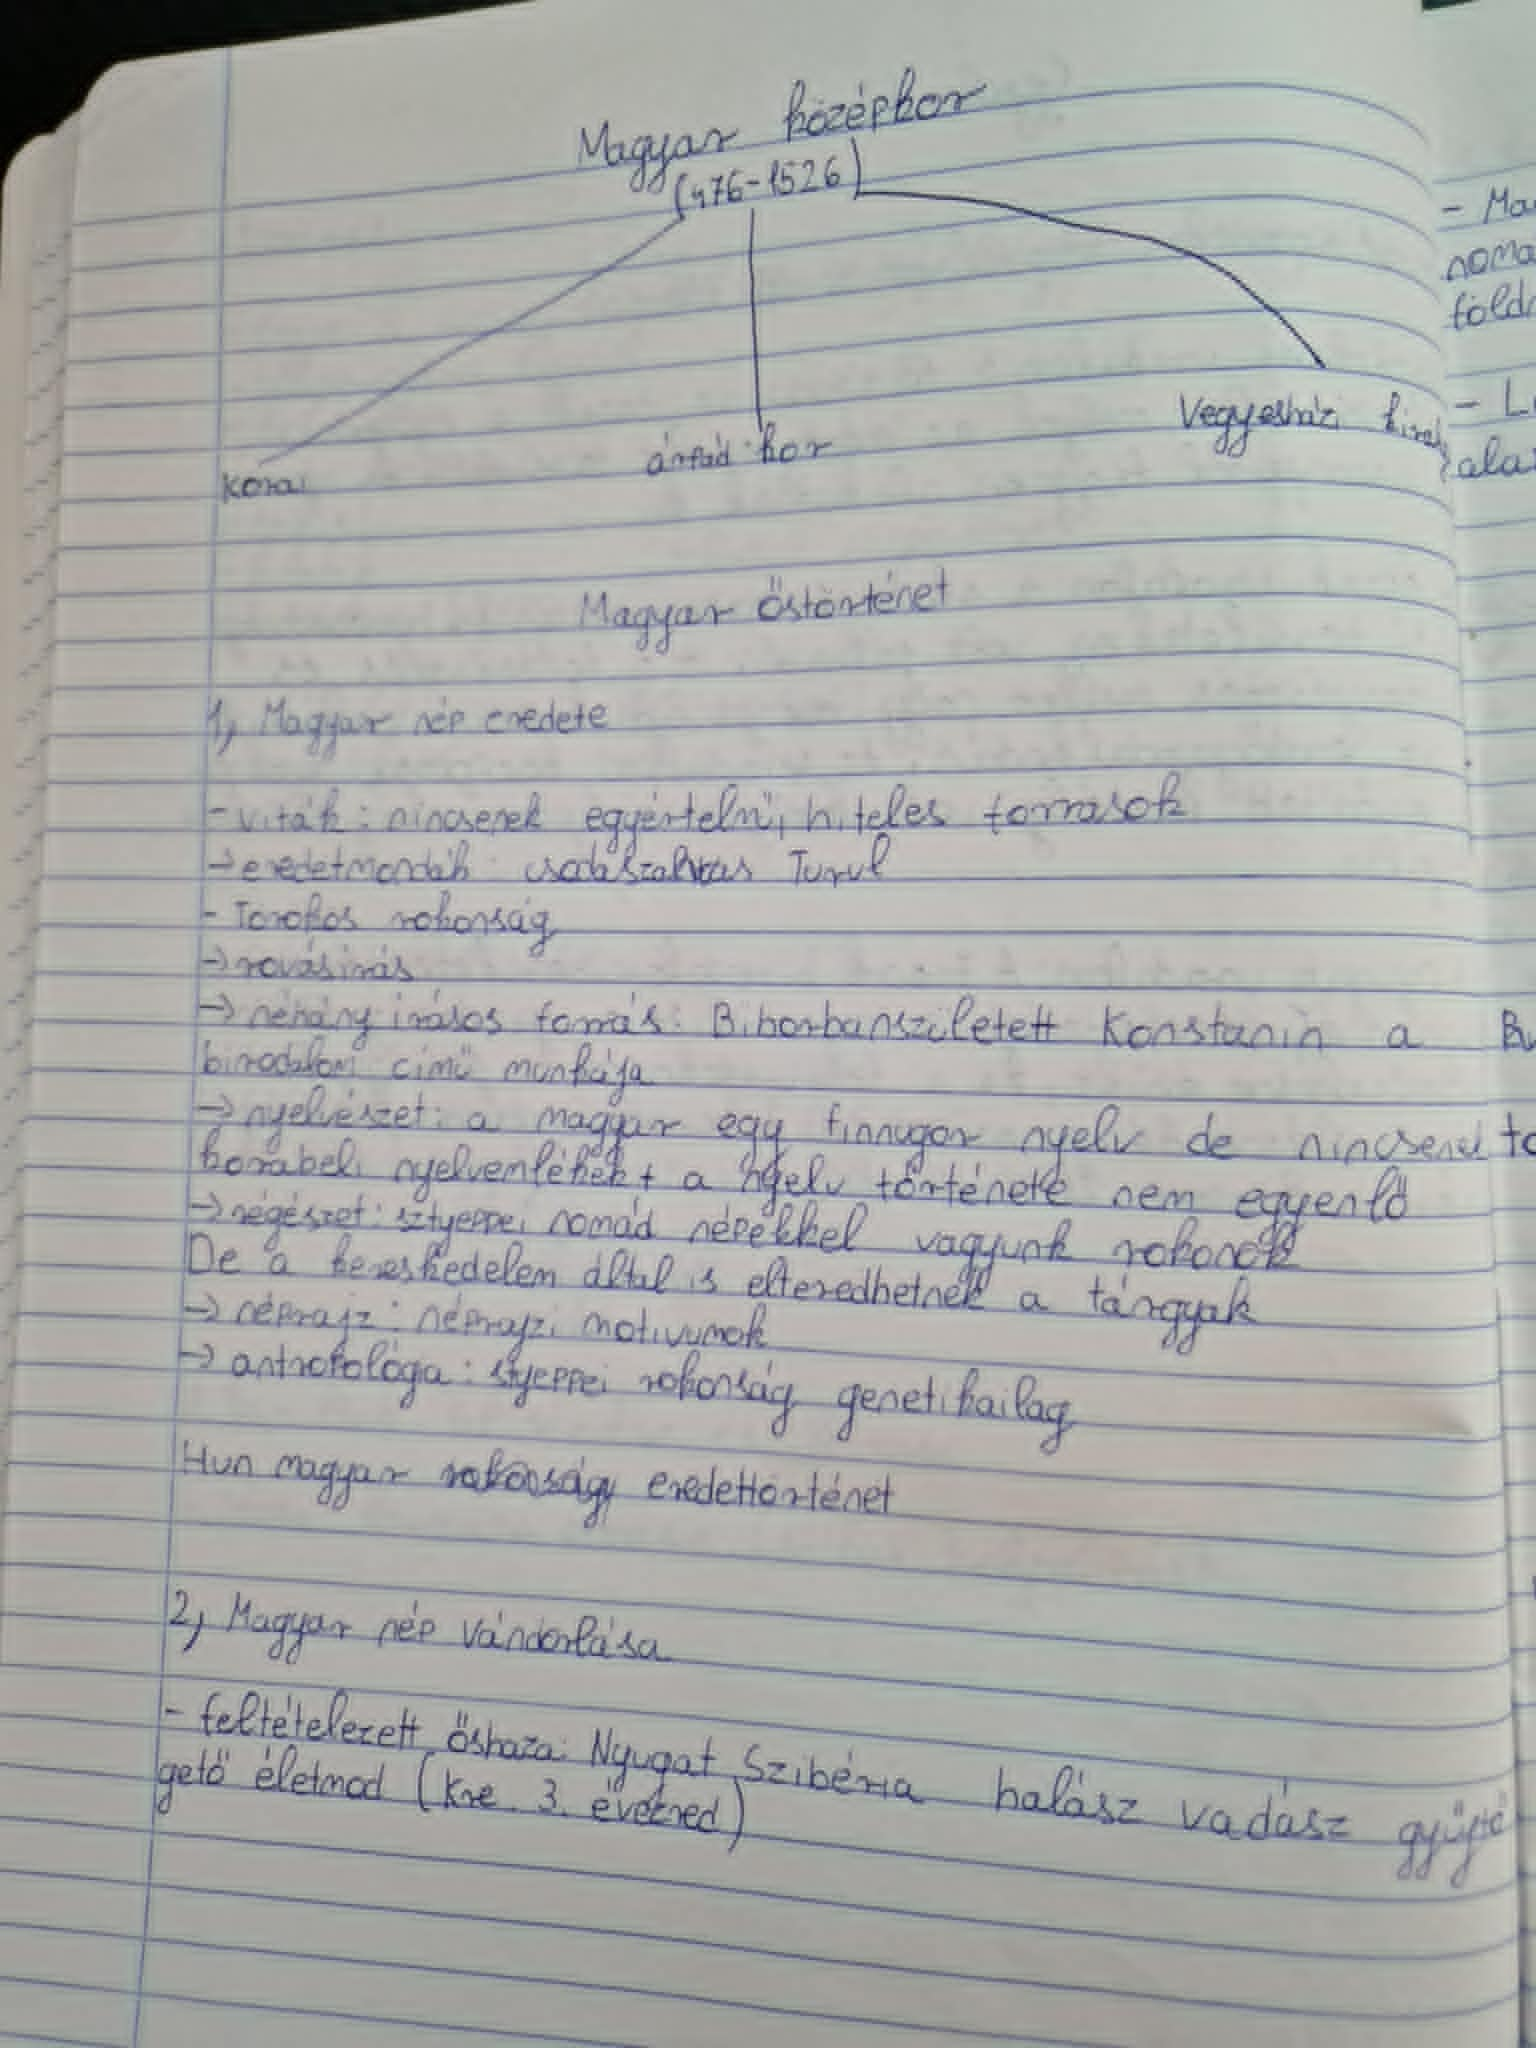 Magyar középkor
(476-1526)
Korai
árpád-kor
Vegyesházi király
Magyar őstörténet
1, Magyar nép eredete
- viták: nincsenek egyértelmű, hiteles források
→ eredetmondák csodaszarvas Turul
- Törökös rokonság
→ rovásírás
→ néhány írásos forrás: Biborbanszületett Konstanin a
birodalom című munkája
→ nyelvészet: a magyar egy finnugor nyelv de nincsenek
korabeli nyelvemlékek + a nyelv története nem egyenlő
→ régészet: sztyeppei nomád népekkel vagyunk rokonok
De a kereskedelem által is elteredhetnek a tárgyak
→ néprajz: néprajzi motivumok
→ antropológa: styeppei rokonság genetikailag
Hun magyar rokonság eredettörténet
2, Magyar nép vándorlása
- feltételezett őshaza: Nyugat Szibéria halász vadász gyűjtö
gető életmod (Kre. 3. évezred)
- Ma
noma
föld
- L
ala